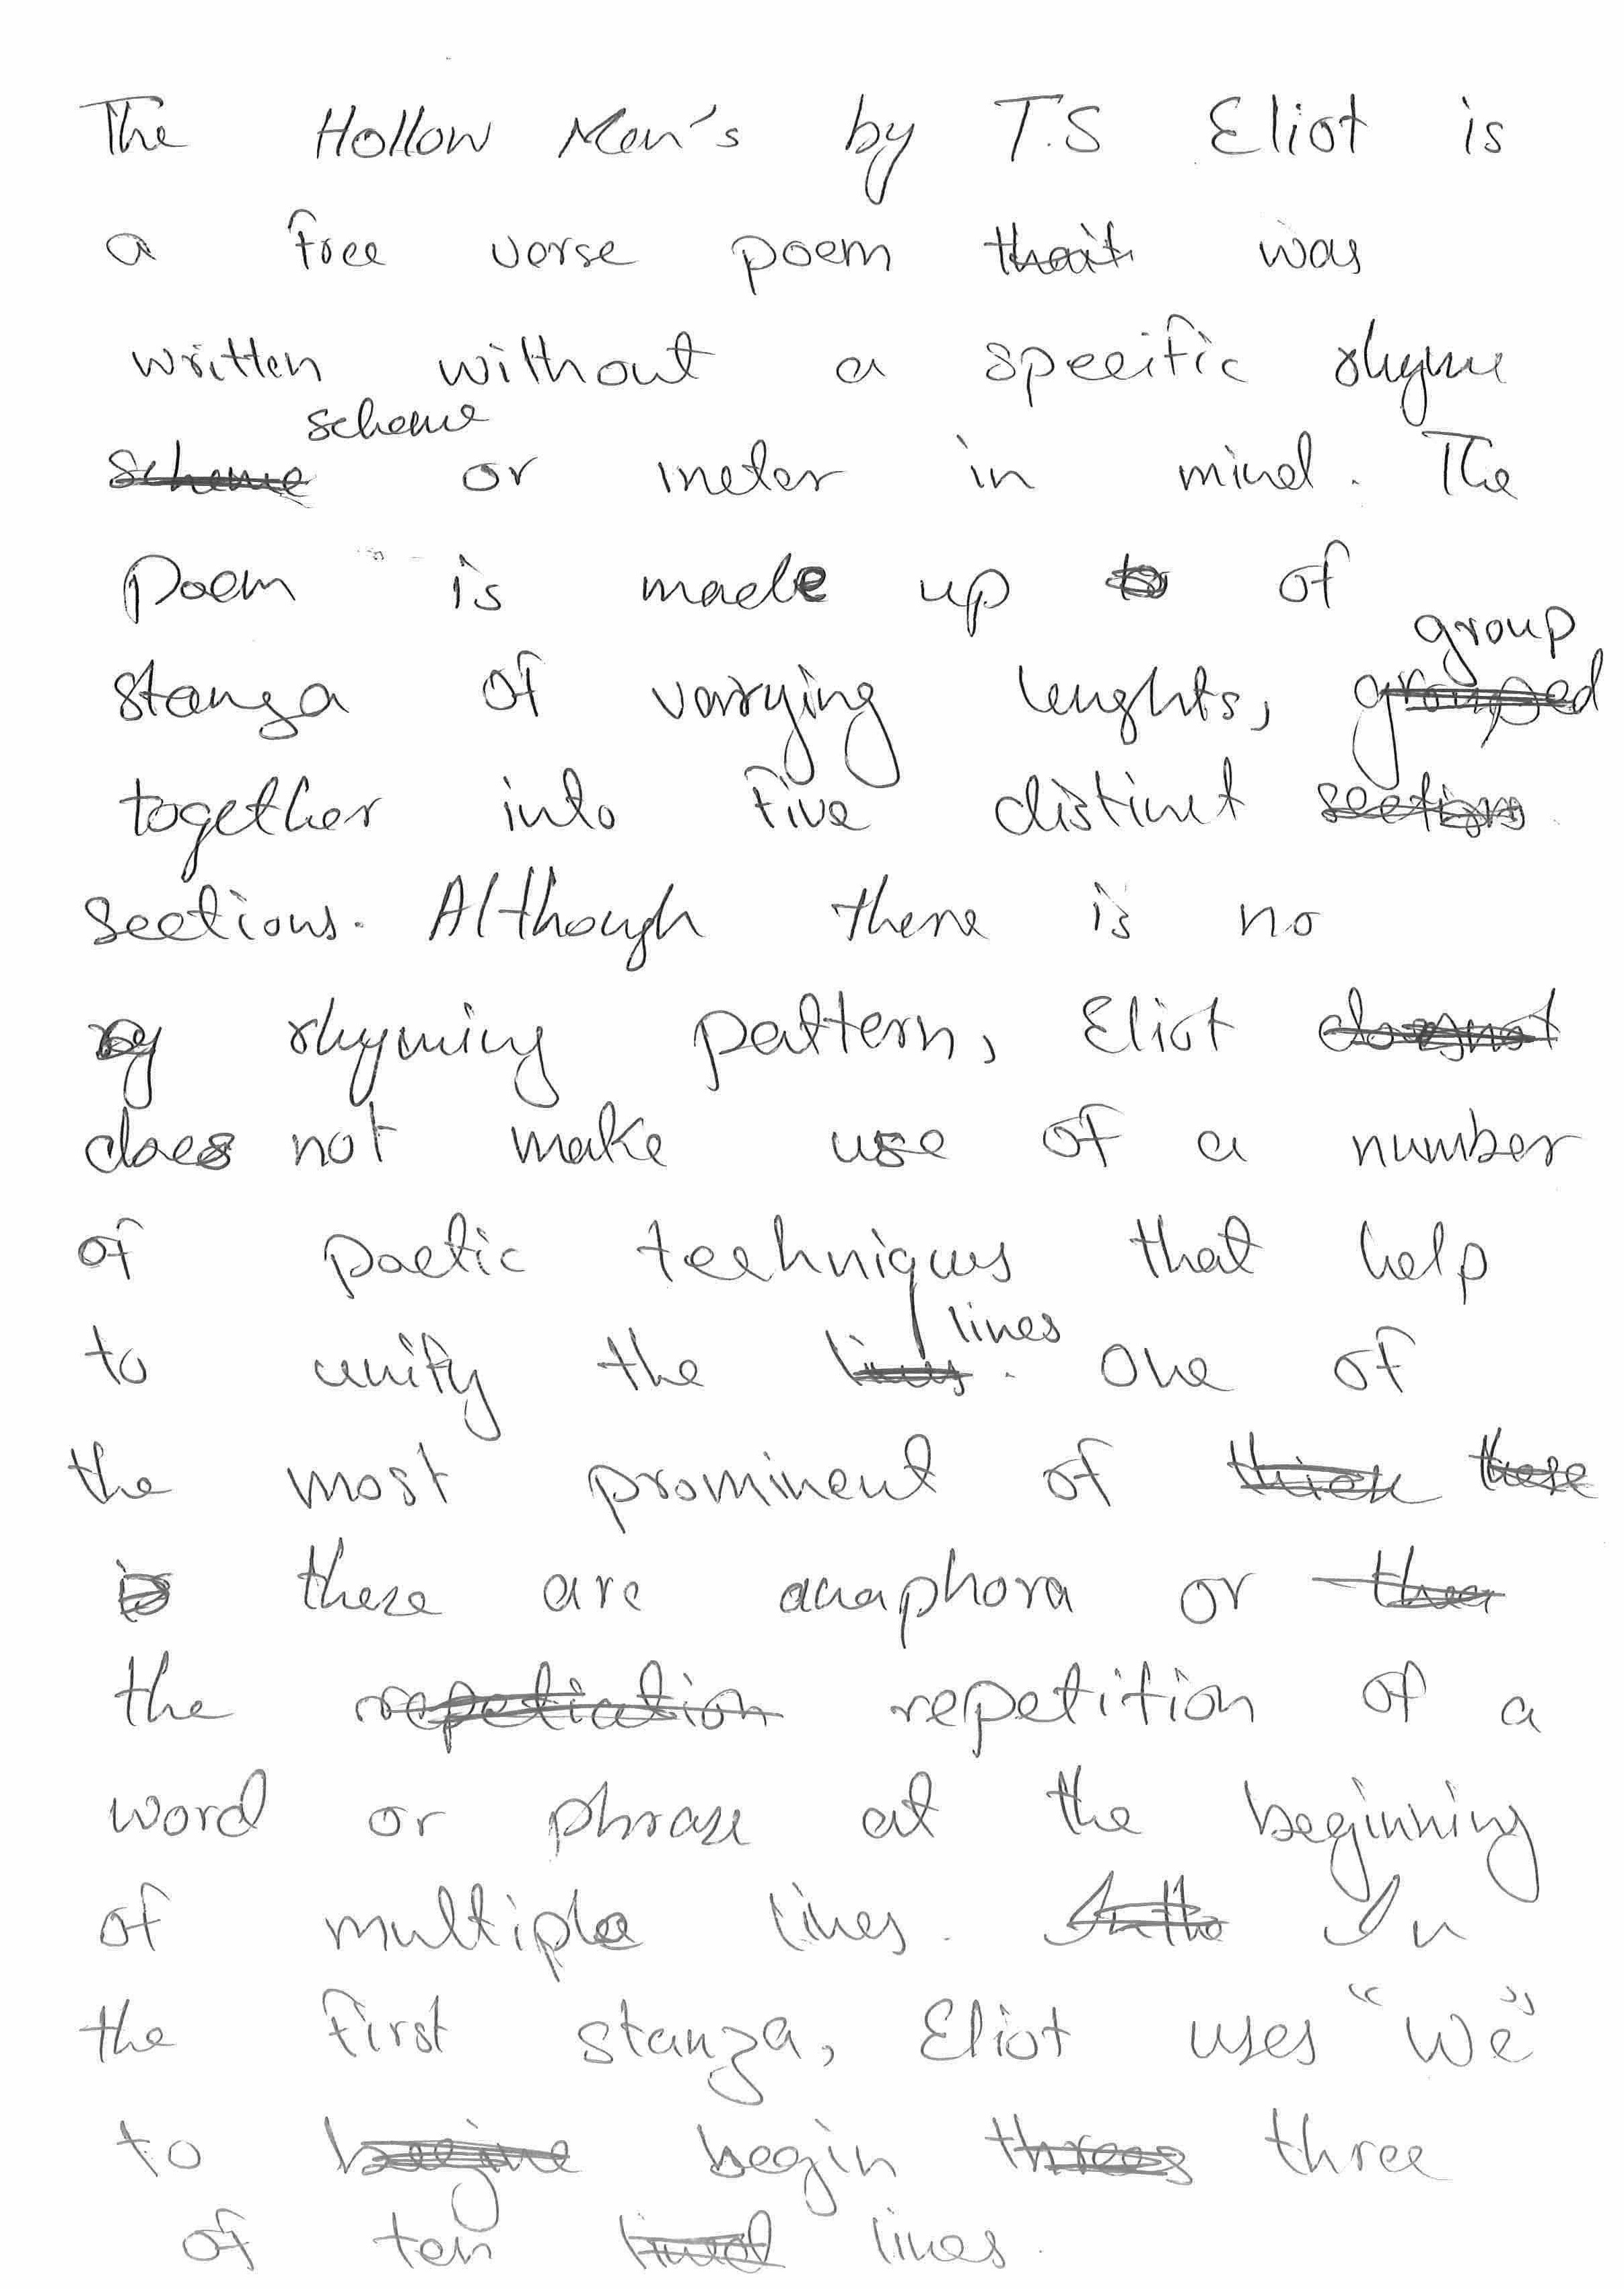 The Hollow Men's by T.S Eliot is
a free verse poem was
written without a specific rhyme
scheme or meter in mind. The
Poem is made up of
stanza of varying lenghts, group
together into five distinct
sections. Although there is no
rhyming pattern, Eliot
does not make use of a number
of poetic techniques that help
to unify the lines. One of
the most prominent of
these are anaphora or
the repetition of a
word or phrase at the beginning
of multiple lines. In
the first stanza, Eliot uses "We"
to begin three
of ten lines.